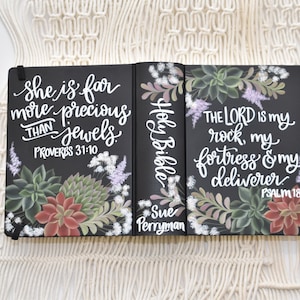 she is far
more precious
THAN jewels
PROVERBS 31:10
Holy Bible
Sue
Perryman
THE LORD is my
rock, my
fortress & my
deliverer
PSALM 18